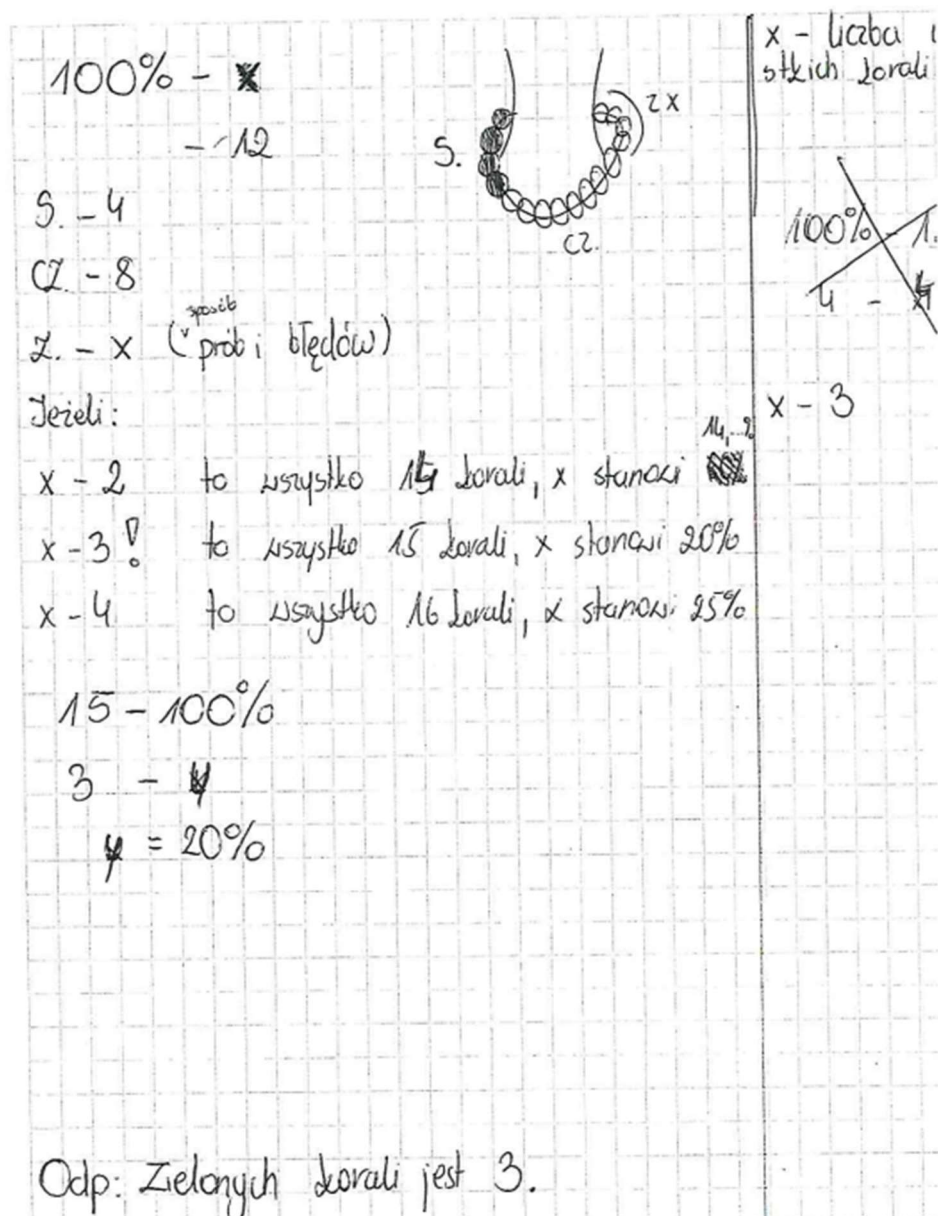 100% - x
- 12
S. - 4
CZ. - 8
S.
zx
CZ.
Z. - x (sposób prób i błędów)
Jeżeli:
x - 2 to wszystko 14 korali, x stanowi
14,..%
x - 3! to wszystko 15 korali, x stanowi 20%
x - 4 to wszystko 16 korali, x stanowi 25%
15 - 100%
3 - y
y = 20%
Odp: Zielonych korali jest 3.
x - liczba
stkich korali
100% - 1
4 -
x - 3